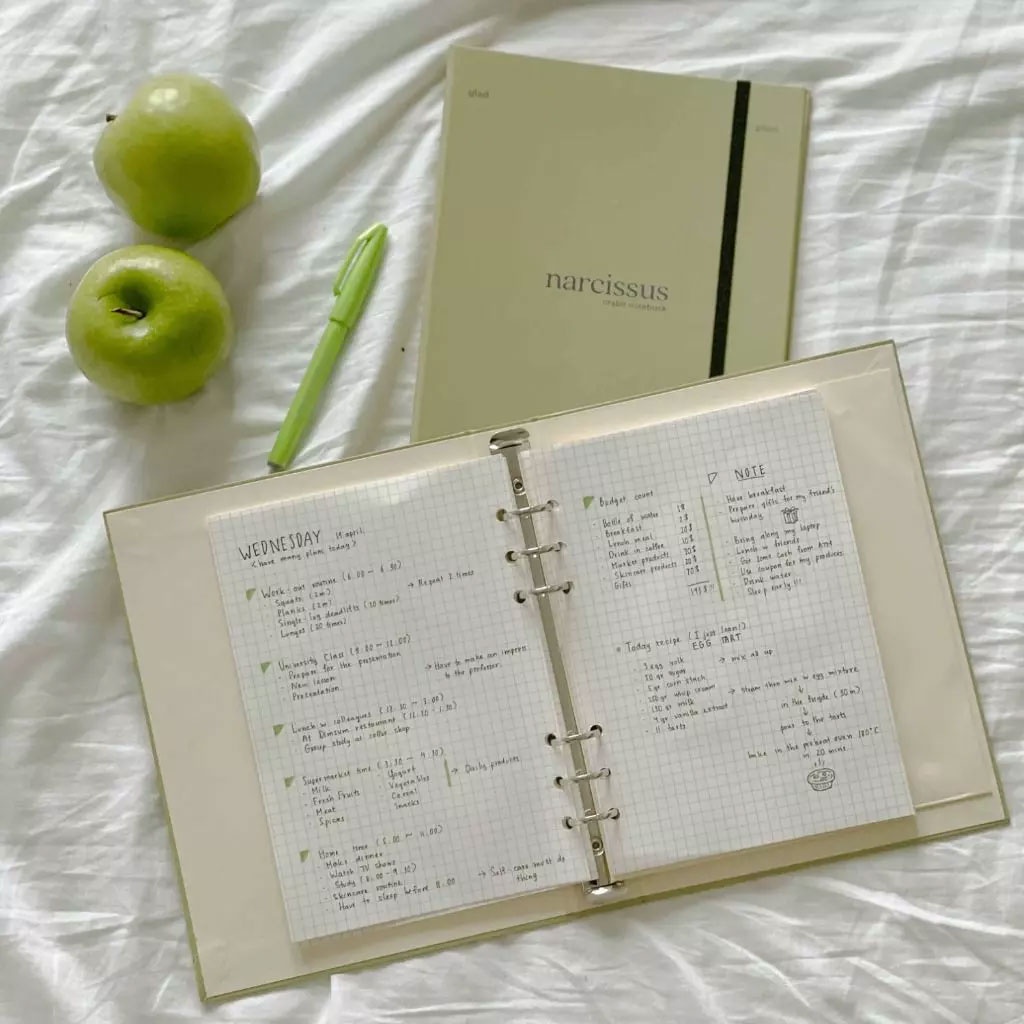 glad
narcissus
WEDNESDAY
(have many plans today)
Work-out routine
Squats (2m)
Planks (2m)
Single-leg deadlifts (10 times)
Lunges (20 times)
→ Repeat 2 times
University Class
Prepare for the presentation
New lesson
Presentation
→ Have to make an impress
to the professor
Lunch w colleagues
At Dimsum restaurant
Group study at coffee shop
Supermarket time
Milk
Fresh Fruits
Meat
Spices
Yogurt
Vegetables
Cereal
Snacks
→ Daily products
Home time
Make dinner
Watch TV shows
Study
Skincare routine
Have to sleep before 11.00
→ Self-care must do
thing
Budget count
Bottle of water
Breakfast
Lunch meal
Drink in coffee
Market products
Skincare products
Gifts
NOTE
Have breakfast
Prepare gifts for my friend's
birthday
Bring along my laptop
Lunch w friends
Get some cash from ATM
Use coupon for my products
Drink water
Sleep early!!!
Today recipe (I just learn!)
EGG TART
egg yolk
sugar
corn starch
whip cream
milk
vanilla extract
11 tarts
→ mix all up
→ steam then mix w egg mixture
↓
in the fridge (30m)
↓
pour to the tarts
↓
bake in the preheat oven 180°C
in 20 mins